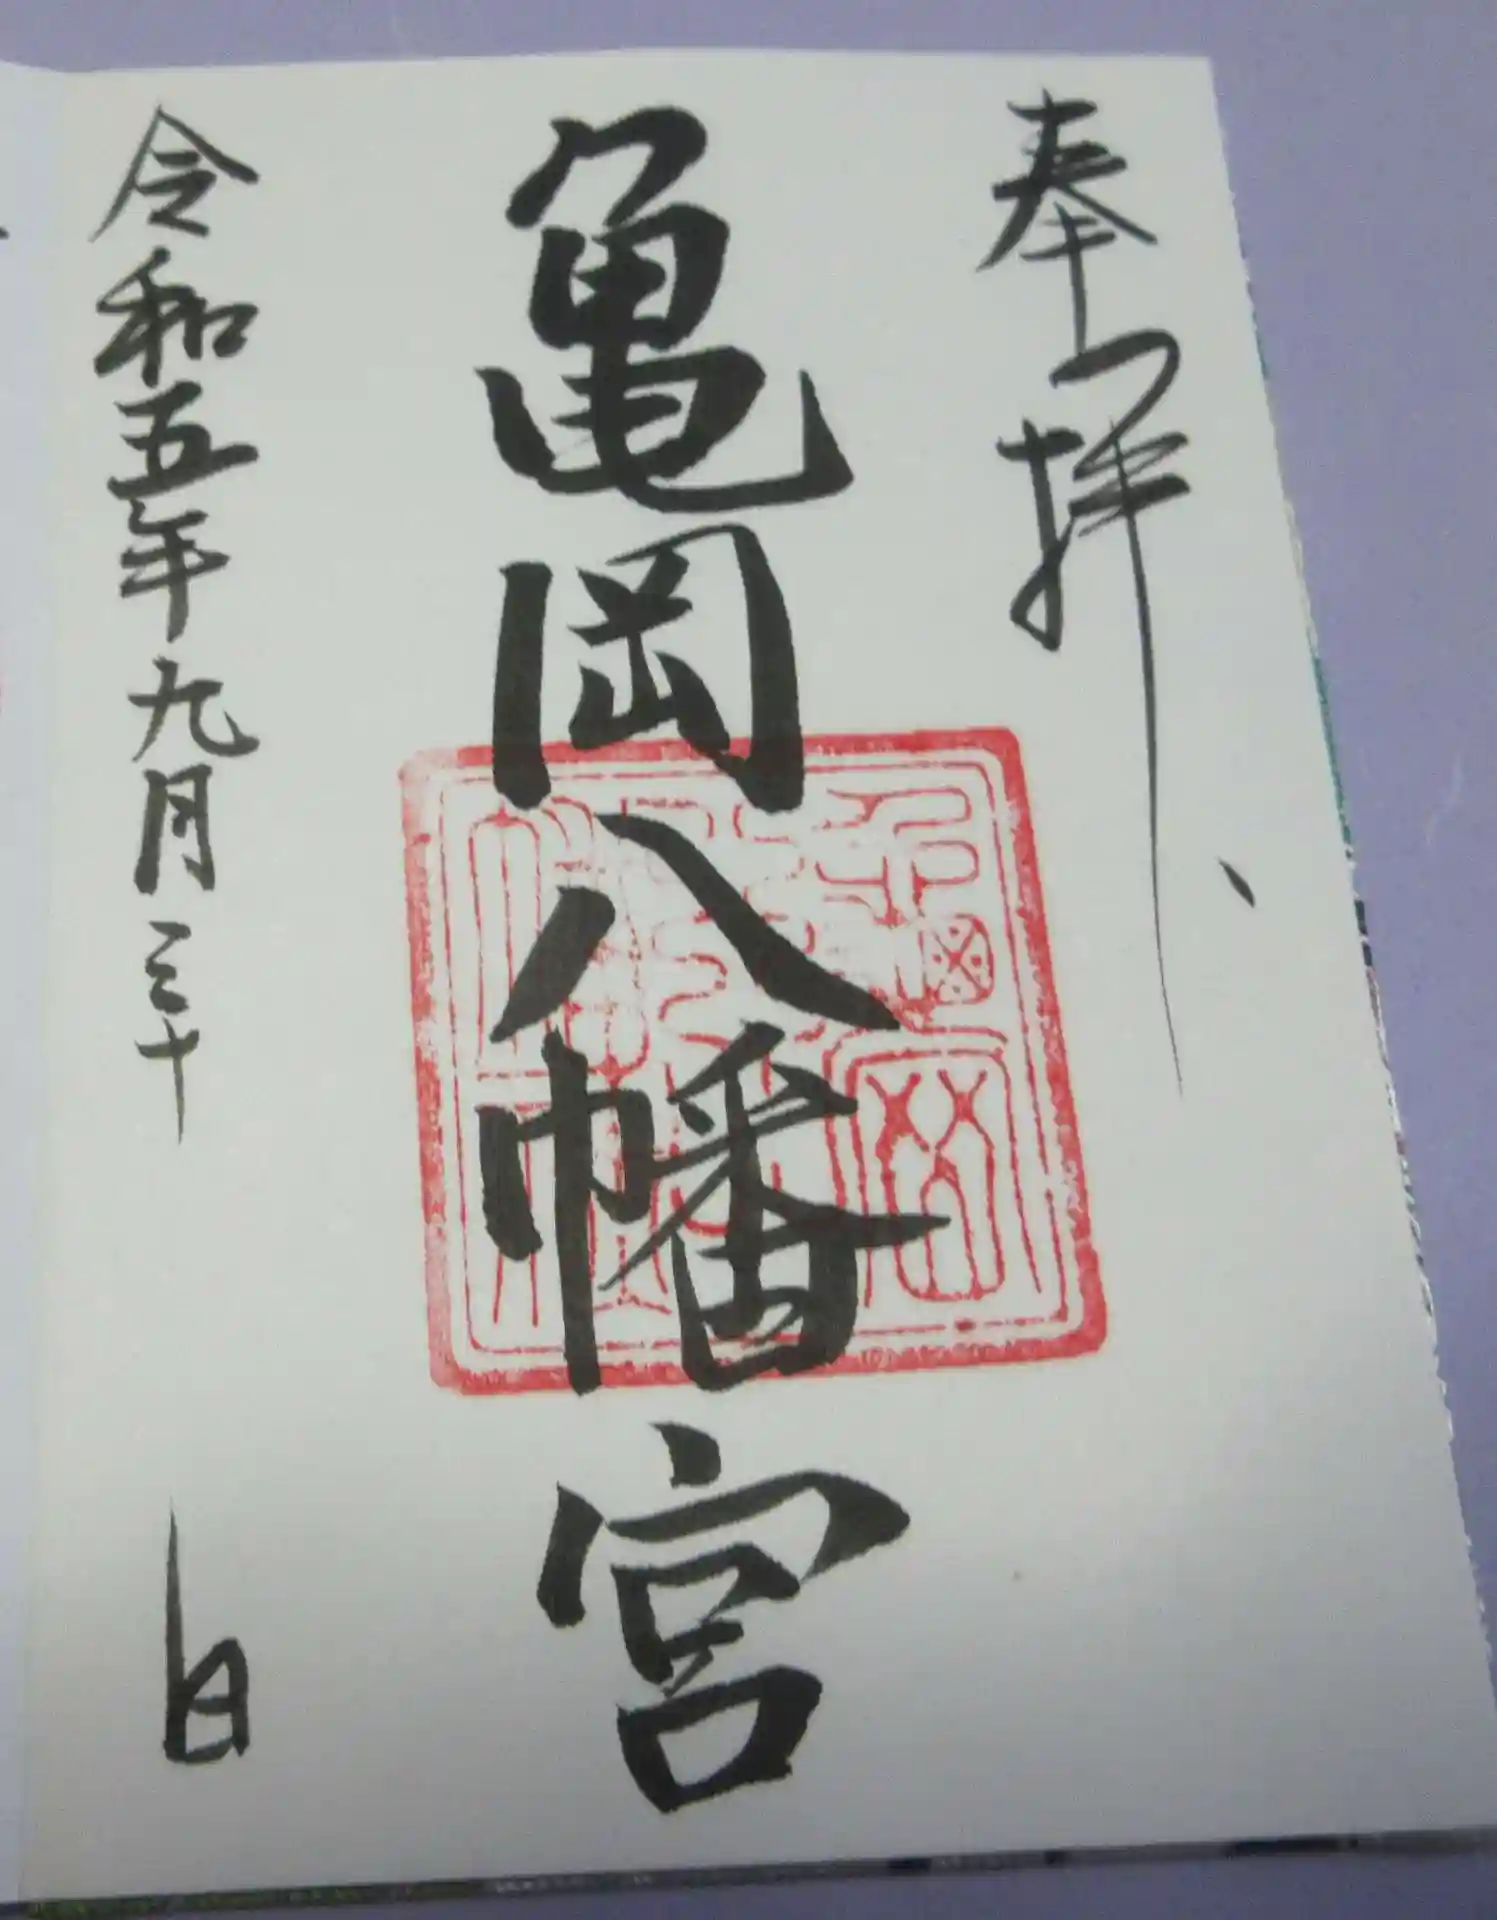 奉拝
亀岡八幡宮
令和五年九月三十日